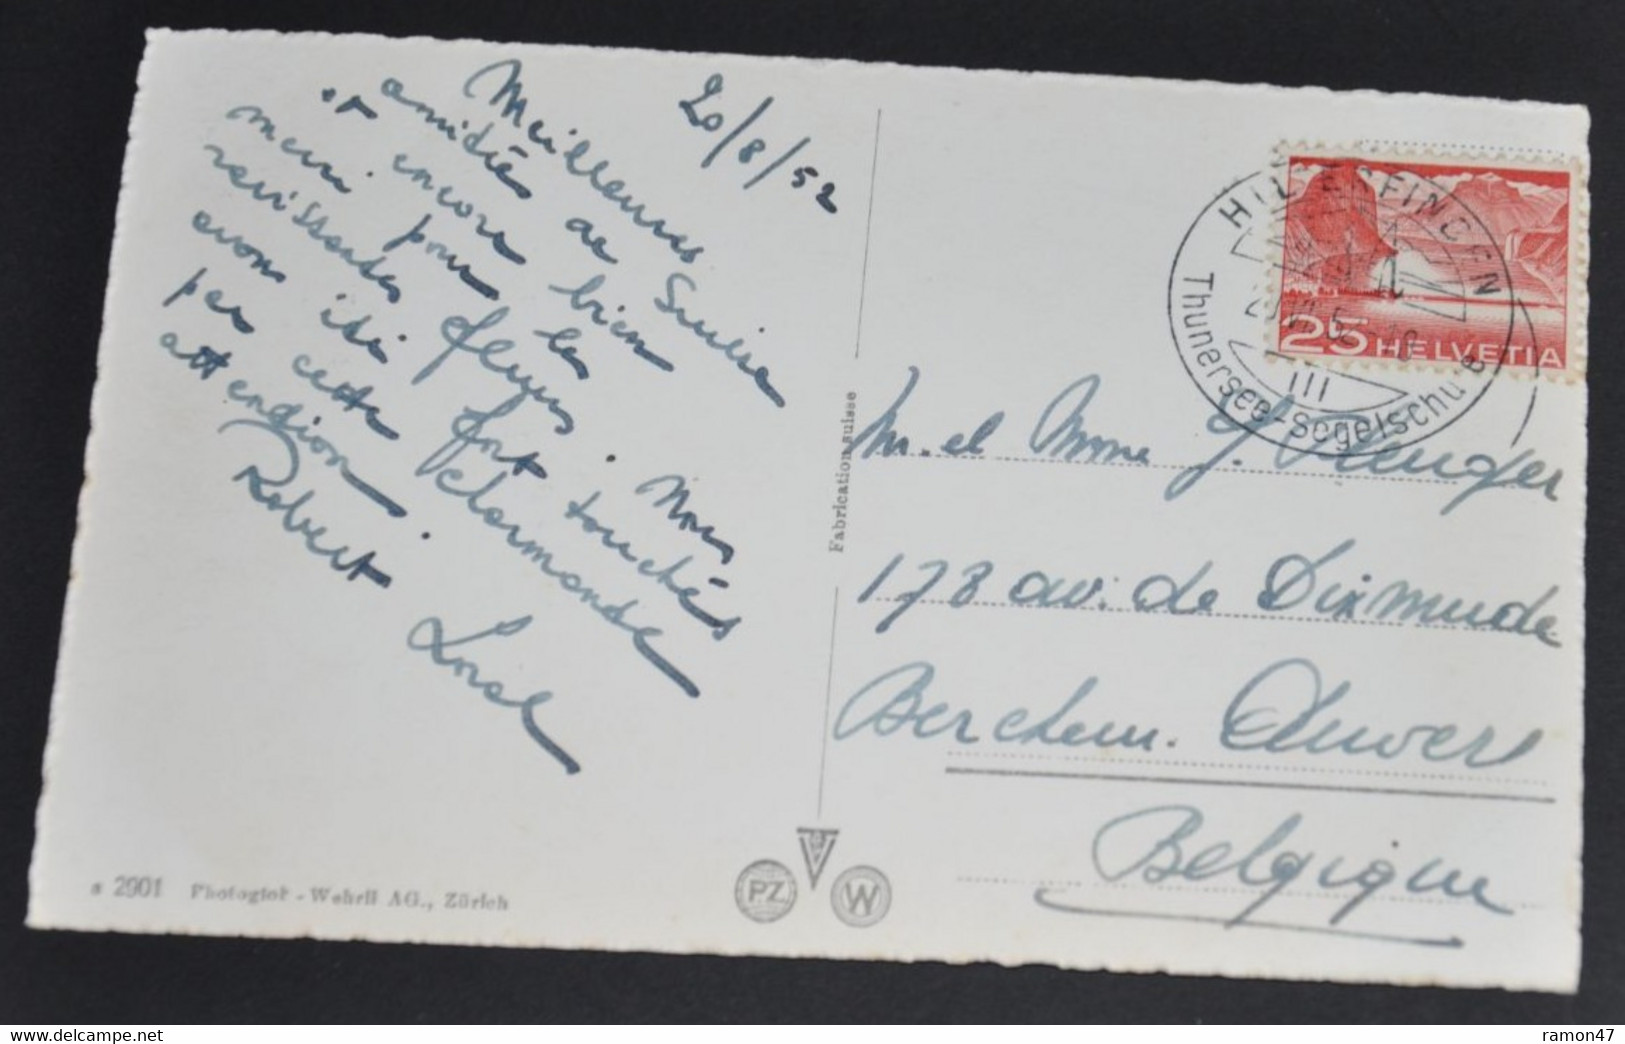 20/8/52
Meilleures
amitiés de Suisse
et encore bien
merci pour les
ravissantes fleurs. Nous
avons été fort touchés
par cette charmante
attention.
Robert
Fabrication suisse
HILTERFINGEN
Thunersee-Segelschule
25 HELVETIA
M. et Mme J.
178 av. de Dixmude
Berchem. Anvers
Belgique
a 2901 Photoglob-Wehrli AG., Zürich
PZ
W
www.delcampe.net
ramon47